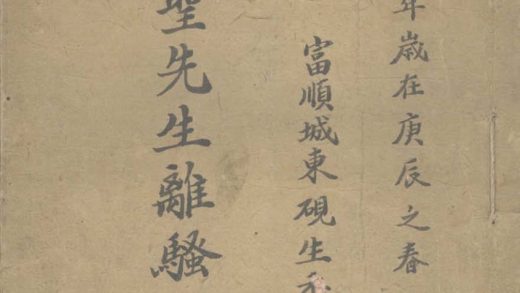 年歲在庚辰之春
富順城東硯生
聖先生離騷